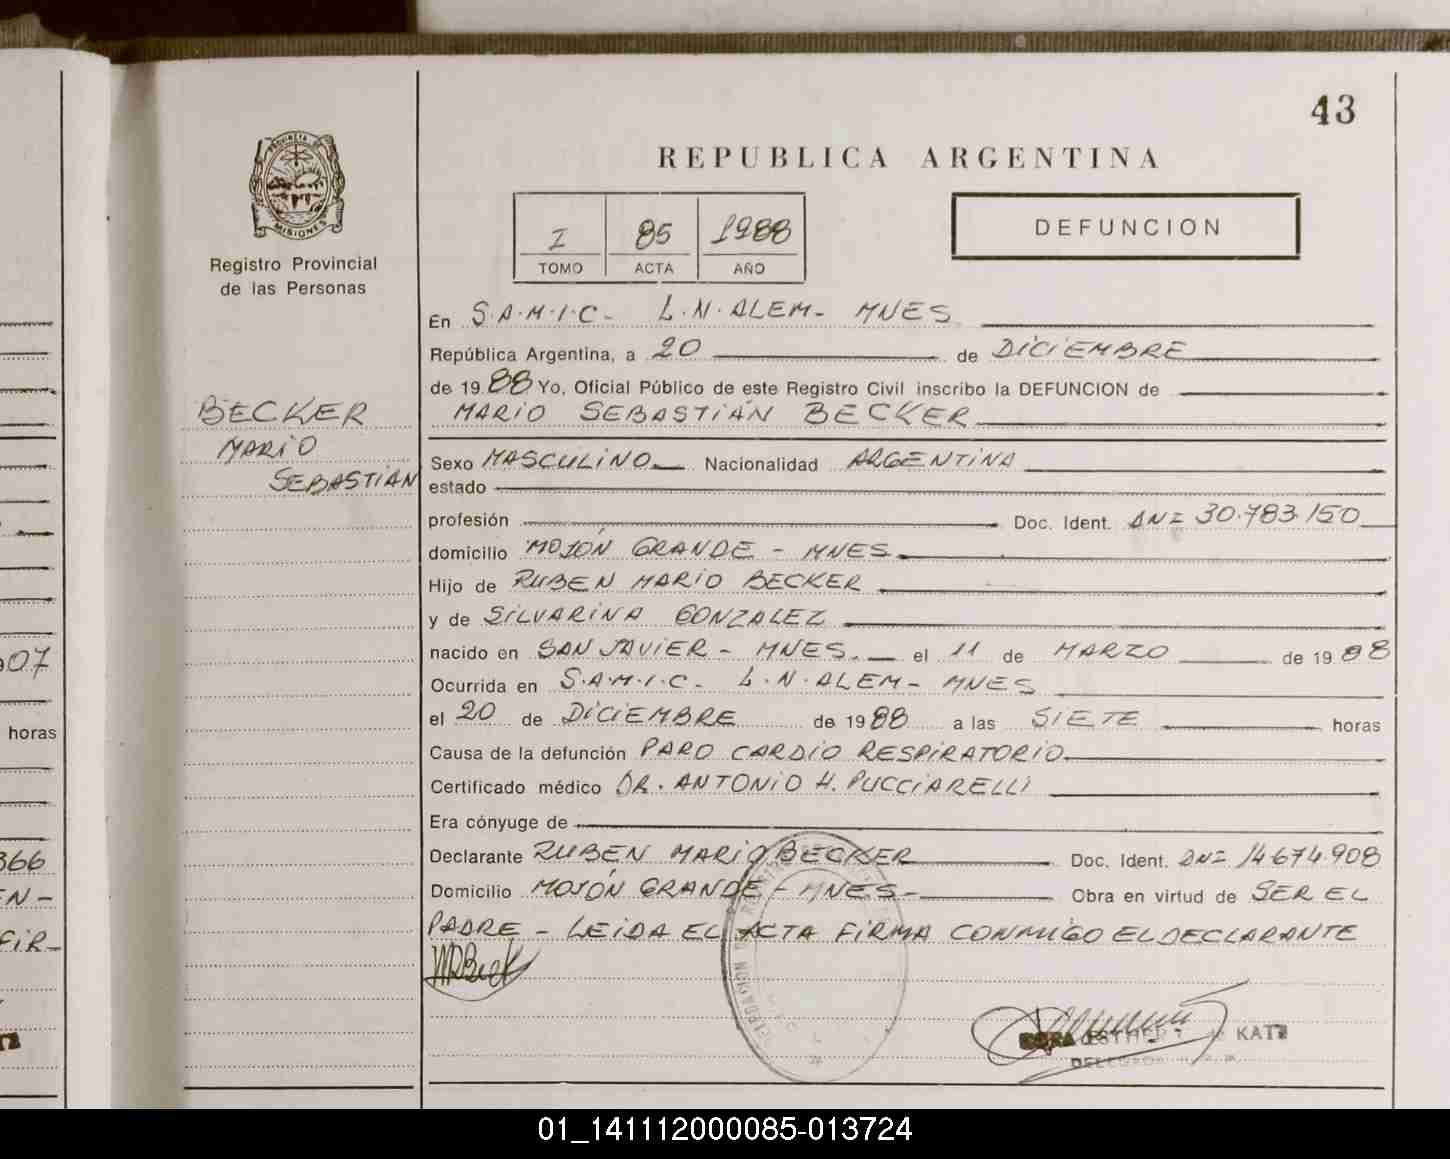 43
REPUBLICA ARGENTINA
PROVINCIA DE
MISIONES
Registro Provincial
de las Personas
I 85 1988
TOMO ACTA AÑO
DEFUNCION
En S.A.M.I.C- L.N.ALEM- MNES
República Argentina, a 20 de DICIEMBRE
de 1988 Yo, Oficial Público de este Registro Civil inscribo la DEFUNCION de
MARIO SEBASTIÁN BECKER
BECKER
MARIO
SEBASTIÁN
Sexo MASCULINO Nacionalidad ARGENTINA
estado
profesión Doc. Ident. DNI 30.783.150
domicilio MOJÓN GRANDE - MNES
Hijo de RUBEN MARIO BECKER
y de SILVARINA GONZALEZ
nacido en SAN JAVIER - MNES. el 11 de MARZO de 1988
Ocurrida en S.A.M.I.C- L.N.ALEM- MNES
el 20 de DICIEMBRE de 1988 a las SIETE horas
Causa de la defunción PARO CARDIO RESPIRATORIO
Certificado médico DR. ANTONIO H. PUCCIARELLI
Era cónyuge de
Declarante RUBEN MARIO BECKER Doc. Ident. DNI 14.674.908
Domicilio MOJÓN GRANDE - MNES- Obra en virtud de SER EL
PADRE - LEIDA EL ACTA FIRMA CONMIGO EL DECLARANTE
ESTHER KATZ
907
horas
366
EN-
FIR-
01_141112000085-013724